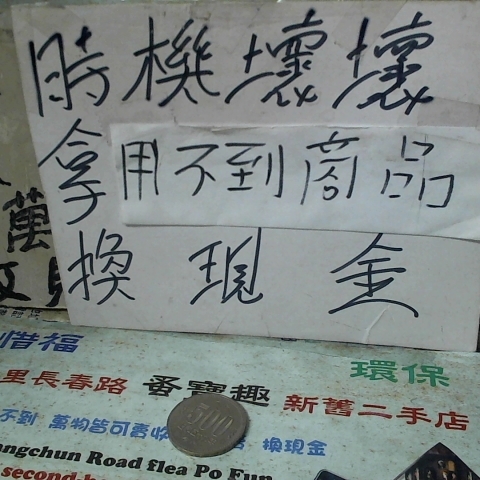 時機壞壞
拿用不到商品
換現金
萬
惜福
環保
里長春路 蚤寶趣 新舊二手店
不到 萬物皆可賣收 換現金
500
angchun Road flea Po Fun
second-h